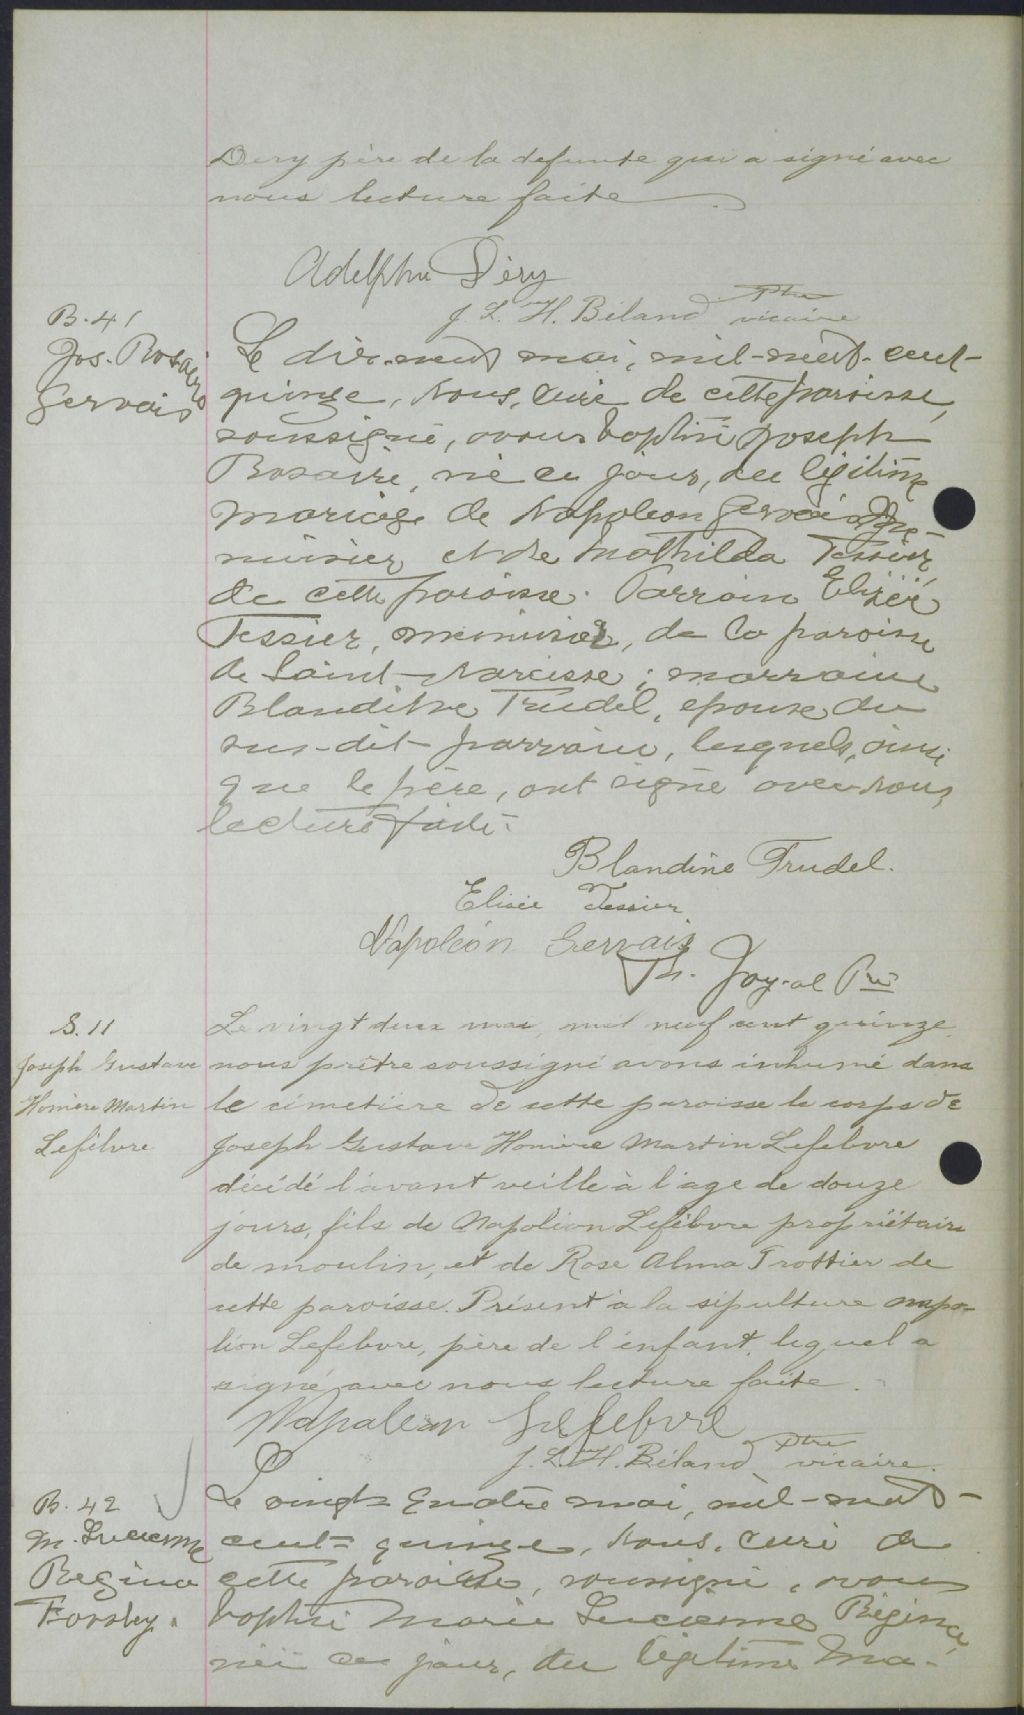 Dery père de la defunte qui a signé avec
nous lecture faite
Adelphe Déry
J. L. H. Béland ptre vicaire
B. 41
Jos. Rosaire
Gervais
Le dix-neuf mai, mil-neuf-cent-
quinze, Nous, Curé de cette paroisse,
soussigné, avons baptisé Joseph
Rosaire, né ce jour, du légitime
mariage de Napoleon Gervais Me-
nuisier et de Mathilda Tessier,
de cette paroisse. Parrain Elizée
Tessier, menuisier, de la paroisse
de Saint-Narcisse; marraine
Blanditne Trudel, épouse du
sus-dit parrain, lesquels, ainsi
que le père, ont signé avec nous,
lecture faite.
Blandine Trudel.
Elisée Tessier
Napoléon Gervais
Th. Joyal Ptre
S. 11
Joseph Gustave
Homère Martin
Lefebvre
Le vingt deux mai, mil neuf cent quinze
nous prêtre soussigné avons inhumé dans
le cimetière de cette paroisse le corps de
Joseph Gustave Homère Martin Lefebvre
décédé l'avant veille à l'age de douze
jours, fils de Napoléon Lefebvre propriétaire
de moulin, et de Rose Alma Trottier de
cette paroisse. Présent à la sépulture Napo-
léon Lefebvre, père de l'enfant, lequel a
signé avec nous lecture faite.
Napoleon Lefebvre
J. L. H. Béland ptre vicaire.
B. 42
M. Lucienne
Regina
Forsley.
Le vingt quatre mai, mil-neuf-
cent-quinze, Nous, Curé de
cette paroisse, soussigné, avons
baptisé Marie Lucienne Régina,
née ce jour, du légitime Ma-